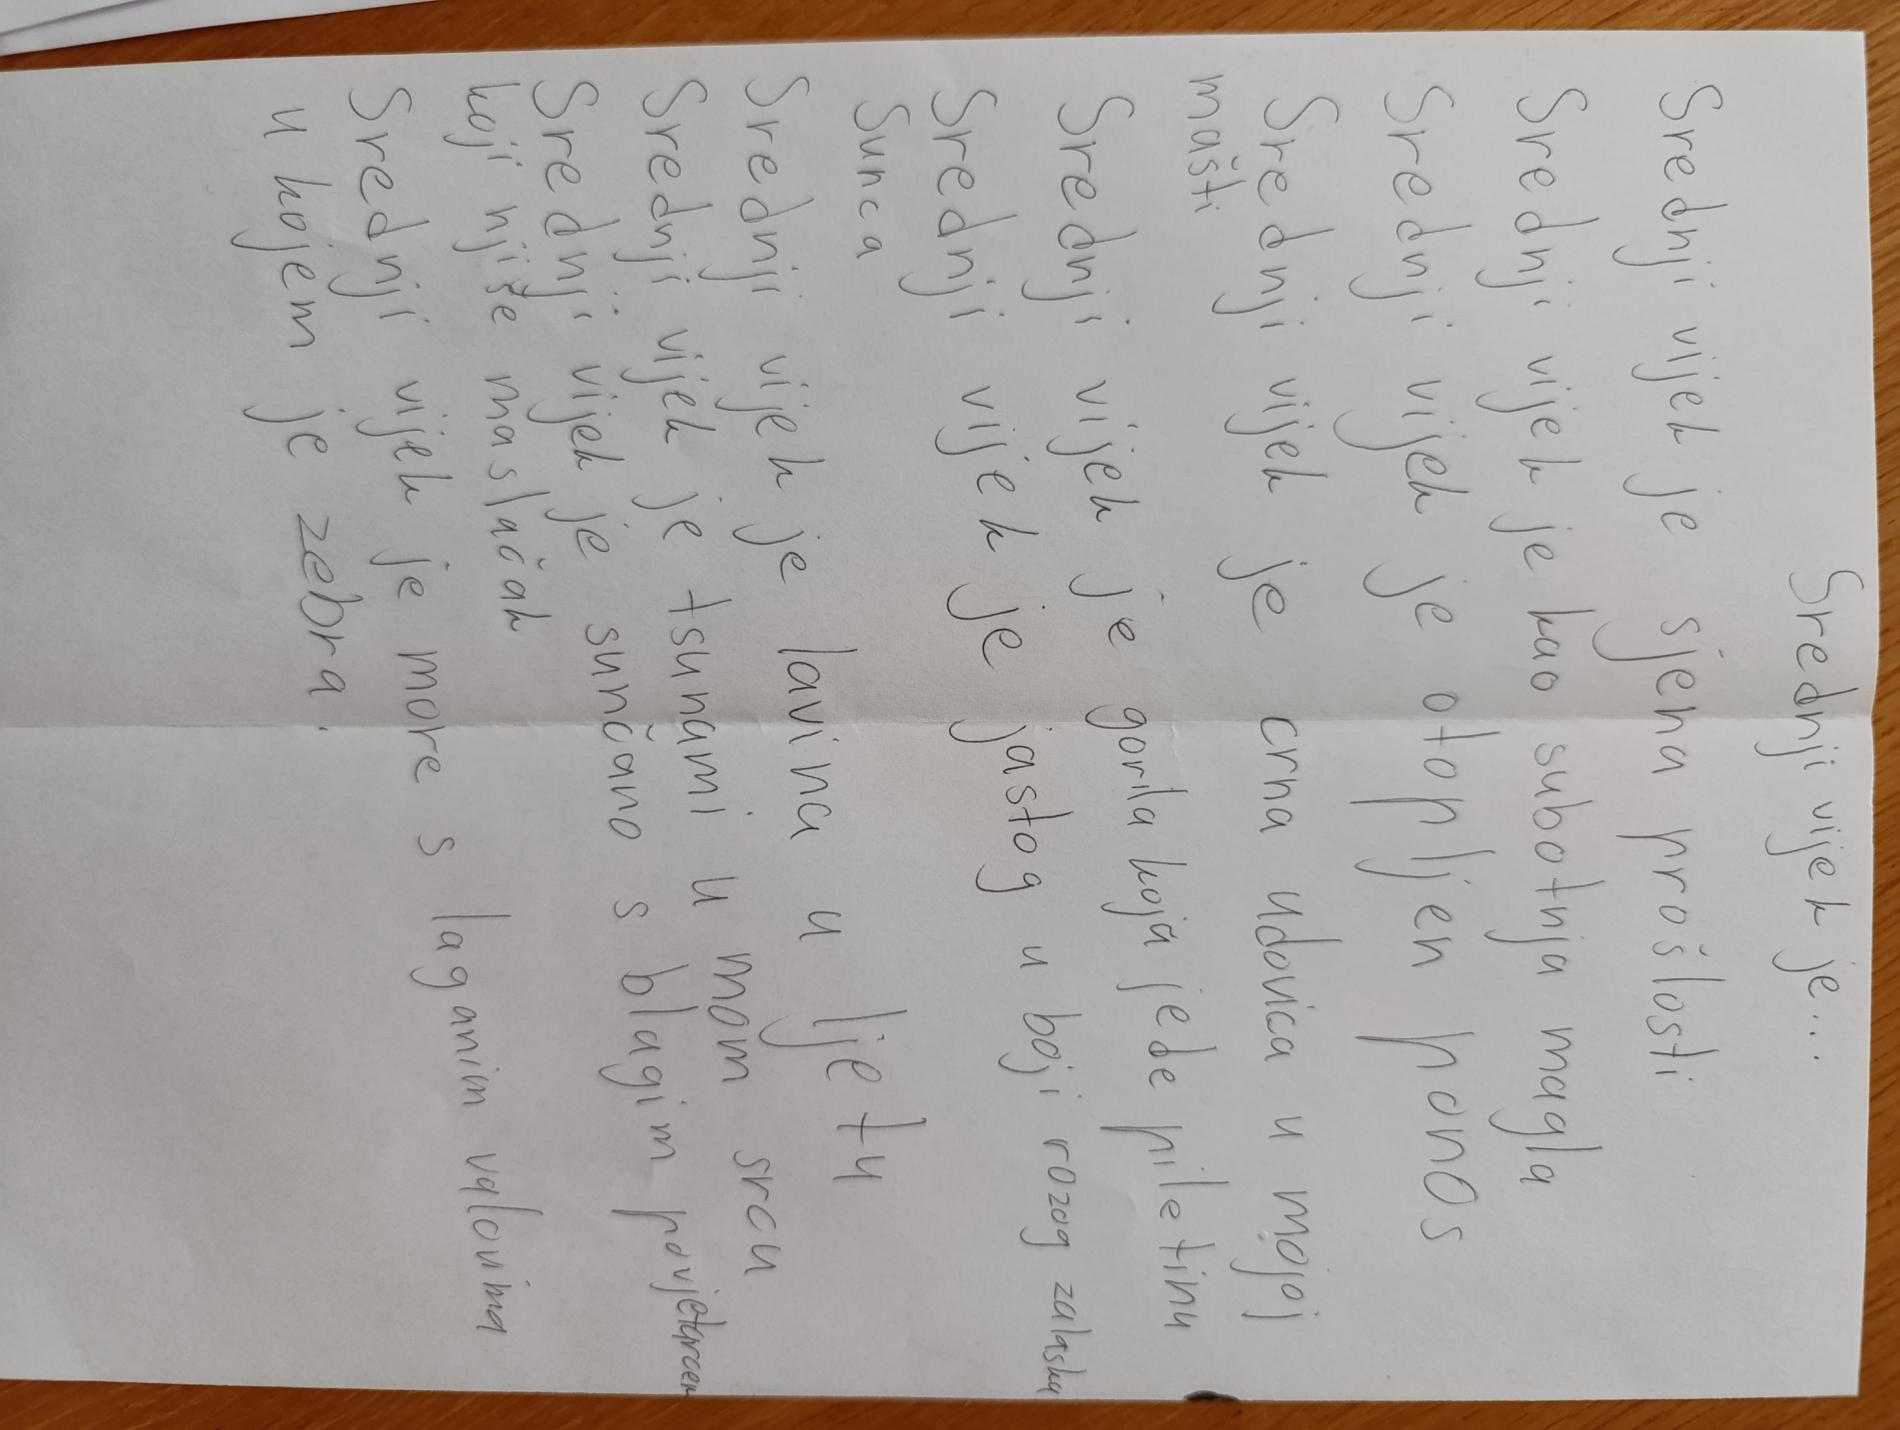 Srednji vijek je...
Srednji vijek je sjena prošlosti
Srednji vijek je kao subotnja magla
Srednji vijek je otopljen ponos
Srednji vijek je crna udovica u mojoj
mašti
Srednji vijek je gorila koja jede piletinu
Srednji vijek je jastog u boji rozog zalaska
Sunca
Srednji vijek je lavina u ljetu
Srednji vijek je tsunami u mom srcu
Srednji vijek je sunčano s blagim povjetarcem
koji njiše maslačak
Srednji vijek je more s laganim valovima
u kojem je zebra.